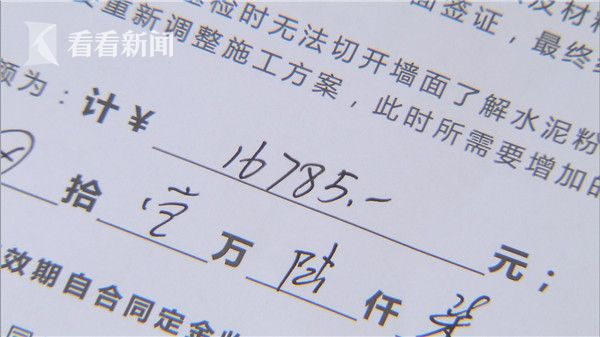 看看新闻
面签证，最终
检时无法切开墙面了解水泥粉
重新调整施工方案，此时所需要增加的
额为：计￥16785.-元；
⊗拾壹万陆仟柒
效期自合同定金
同